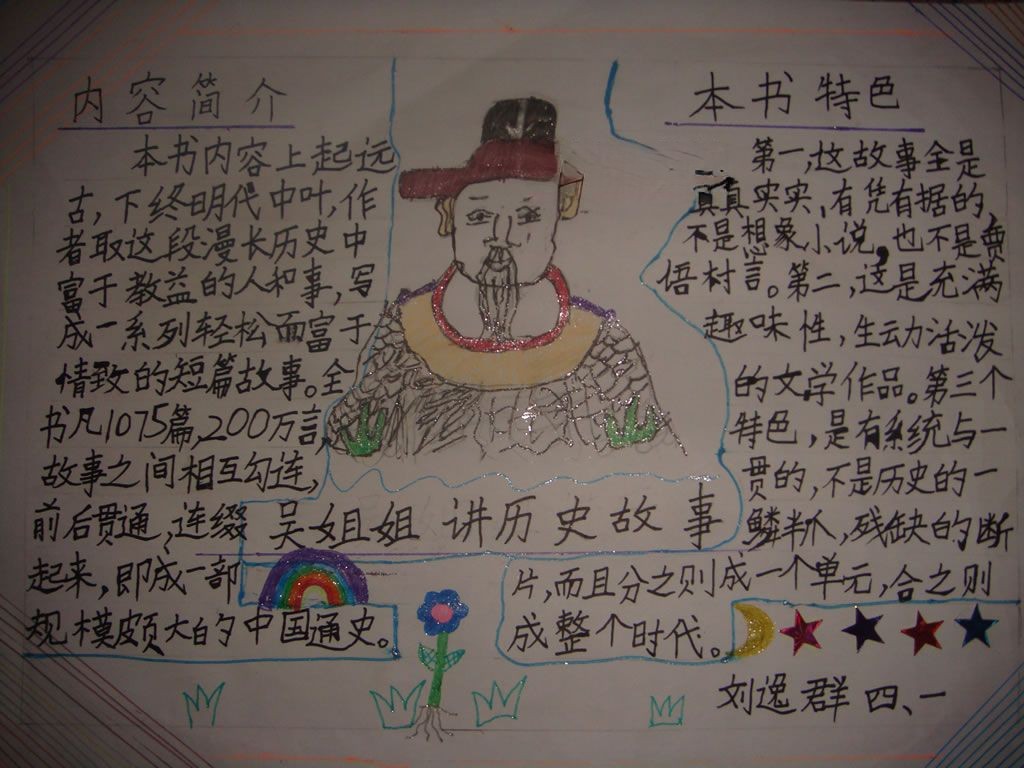 内容简介
本书内容上起远
古,下终明代中叶,作
者取这段漫长历史中
富于教益的人和事,写
成一系列轻松而富于
情致的短篇故事。全
书凡1075篇,200万言,
故事之间相互勾连,
前后贯通,连缀
起来,即成一部
规模颇大的中国通史。
吴姐姐讲历史故事
本书特色
第一,这故事全是
真真实实、有凭有据的,
不是想象小说,也不是贯
悟村言。第二,这是充满
趣味性,生动活泼
的文学作品。第三个
特色,是有系统与一
贯的,不是历史的一
鳞半爪,残缺的断
片,而且分之则成一个单元,合之则
成整个时代。
刘逸群 四、一